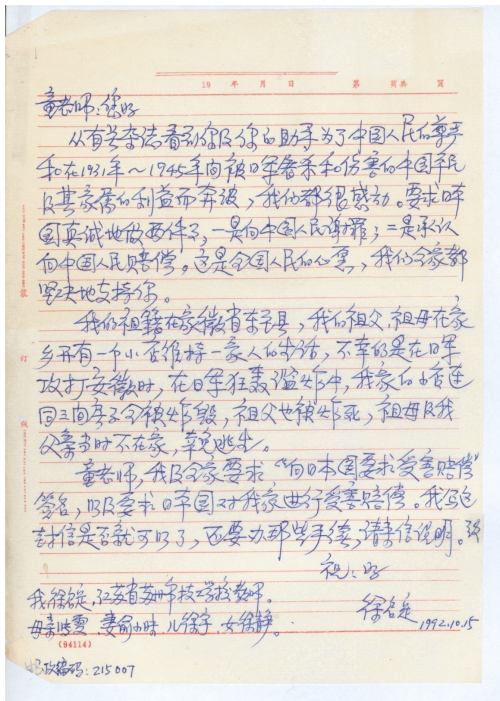 19 年 月 日 第 页共 页
童老师：您好
从有关杂志看到你及你的助手为了中国人民的尊严
和在1931年～1945年间被日军屠杀和伤害的中国平民
及其家属的利益而奔波，我们都很感动。要求日本
国真诚地做两件事，一是向中国人民谢罪；二是承认
向中国人民赔偿。这是全国人民的心愿，我们全家都
坚决地支持你。
我们祖籍在安徽省东至县，我的祖父、祖母在家
乡开有一个小店维持一家人的生活，不幸的是在日军
攻打安徽时，在日军狂轰滥炸中，我家的小店连
同三间房子全被炸毁，祖父也被炸死，祖母及我
父亲当时不在家，幸免逃出。
童老师，我及全家要求“向日本国要求受害赔偿”
签名，以及要求日本国对我家进行受害赔偿。我写这
封信是否就可以了，还要办那些手续，请来信说明。
祝：好
我徐 江苏省苏州市技工学校教师。
徐
1992.10.15
母 妻俞小妹 儿徐宇 女徐静
(94114)
邮政编码：215007
装
订
线